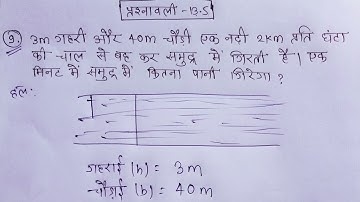 प्रश्नावली - 13.5
9. 3m गहरी और 40m चौड़ी एक नदी 2km प्रति घंटा
की चाल से बह कर समुद्र में गिरती है। एक
मिनट में समुद्र में कितना पानी गिरेगा?
हल:
गहराई (h) = 3m
चौड़ाई (b) = 40m